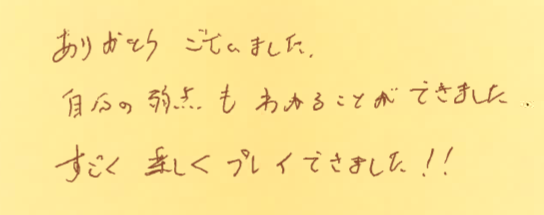 ありがとう ございました.
自分の弱点も わかることが できました.
すごく 楽しく プレイできました!!